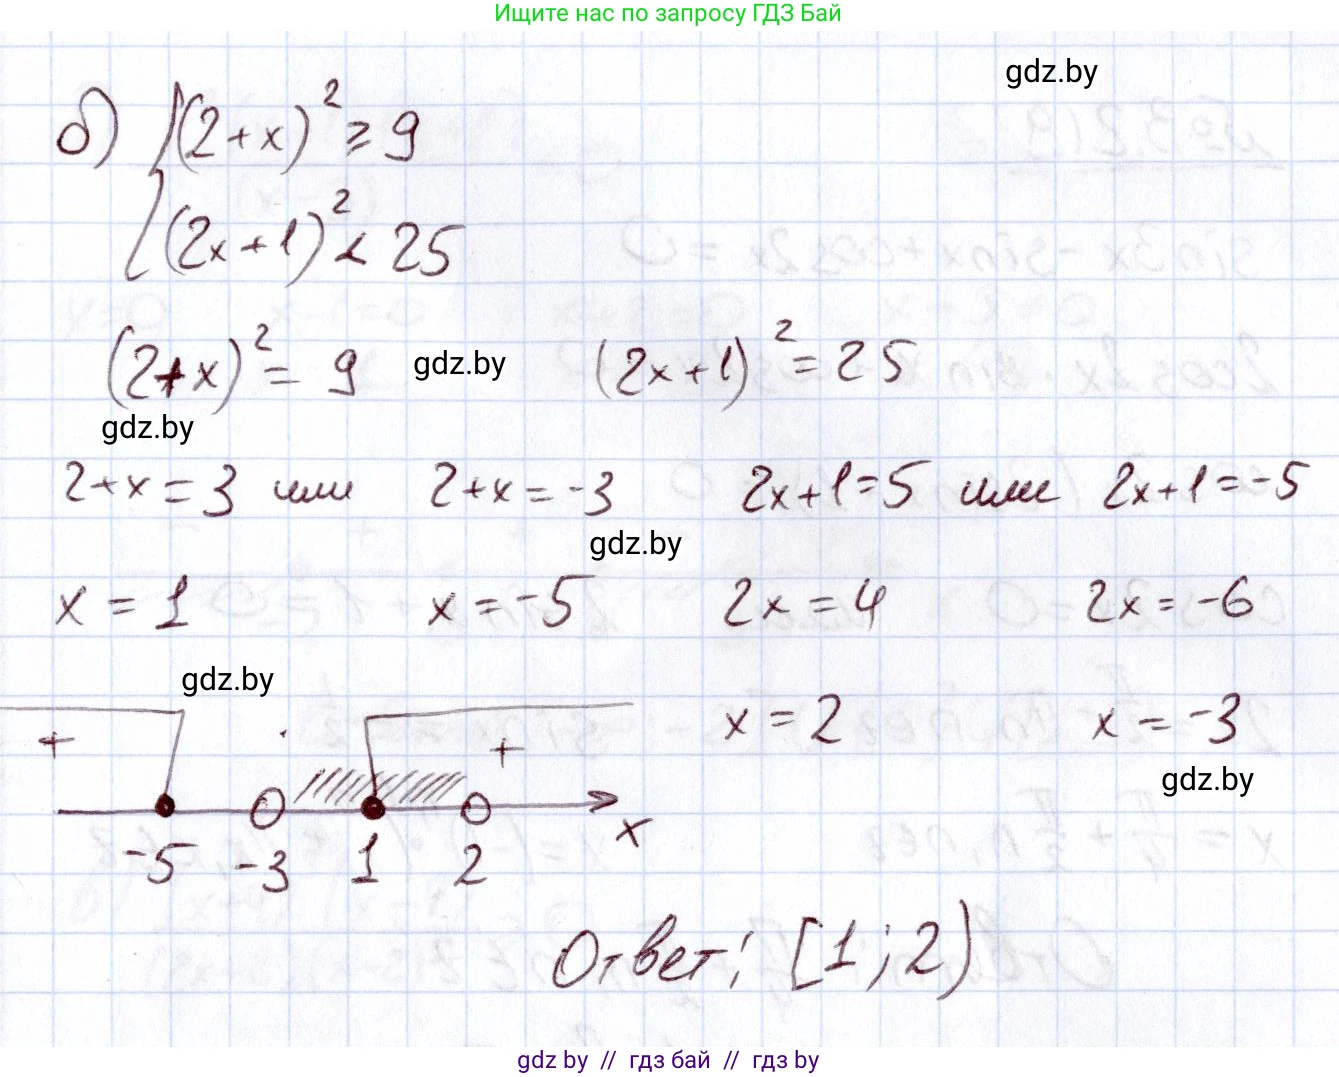 Ищите нас по запросу ГДЗ Бай
gdz.by
б) { (2+x)² ≥ 9
(2x+1)² < 25
(2+x)² = 9 gdz.by (2x+1)² = 25
gdz.by
2+x = 3 или 2+x = -3 2x+1=5 или 2x+1=-5
gdz.by
x = 1 x = -5 2x = 4 2x = -6
gdz.by
x = 2 x = -3
gdz.by
+ +
-5 -3 1 2 x
Ответ: [1; 2)
gdz by // гдз бай // гдз by